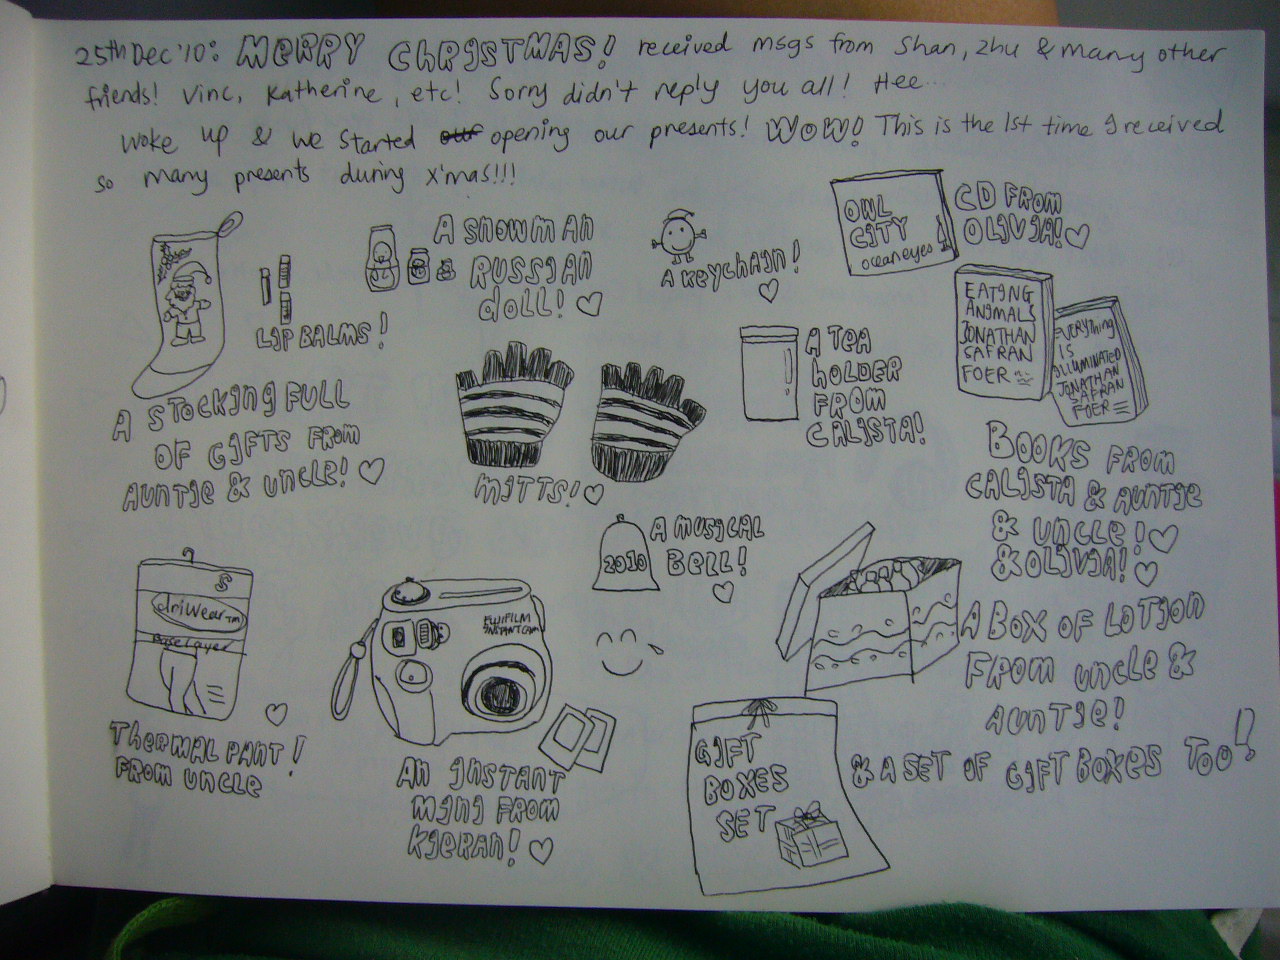 25th Dec '10: MERRY CHRISTMAS! received msgs from Shan, Zhu & many other
friends! Vinc, Katherine, etc! Sorry didn't reply you all! Hee...
Woke up & we started opening our presents! WOW! This is the 1st time I received
so many presents during X'mas!!!
LIP BALMS!
A STOCKING FULL
OF GIFTS FROM
AUNTIE & UNCLE!
A SNOWMAN
RUSSIAN
DOLL!
A KEYCHAIN!
OWL
CITY
oceaneyes
CD FROM
OLIVIA!
MITTS!
A TEA
HOLDER
FROM
CALISTA!
EATING
ANIMALS
JONATHAN
SAFRAN
FOER
EVERYTHING
IS
ILLUMINATED
JONATHAN
SAFRAN
FOER
BOOKS FROM
CALISTA & AUNTIE
& UNCLE!
& OLIVIA!
S
driWear™
BaseLayer
THERMAL PANT!
FROM UNCLE
FUJIFILM
INSTANT CAM
AN INSTANT
MINI FROM
KIERAN!
2010
A MUSICAL
BELL!
A BOX OF LOTION
FROM UNCLE &
AUNTIE!
GIFT
BOXES
SET
& A SET OF GIFT BOXES TOO!